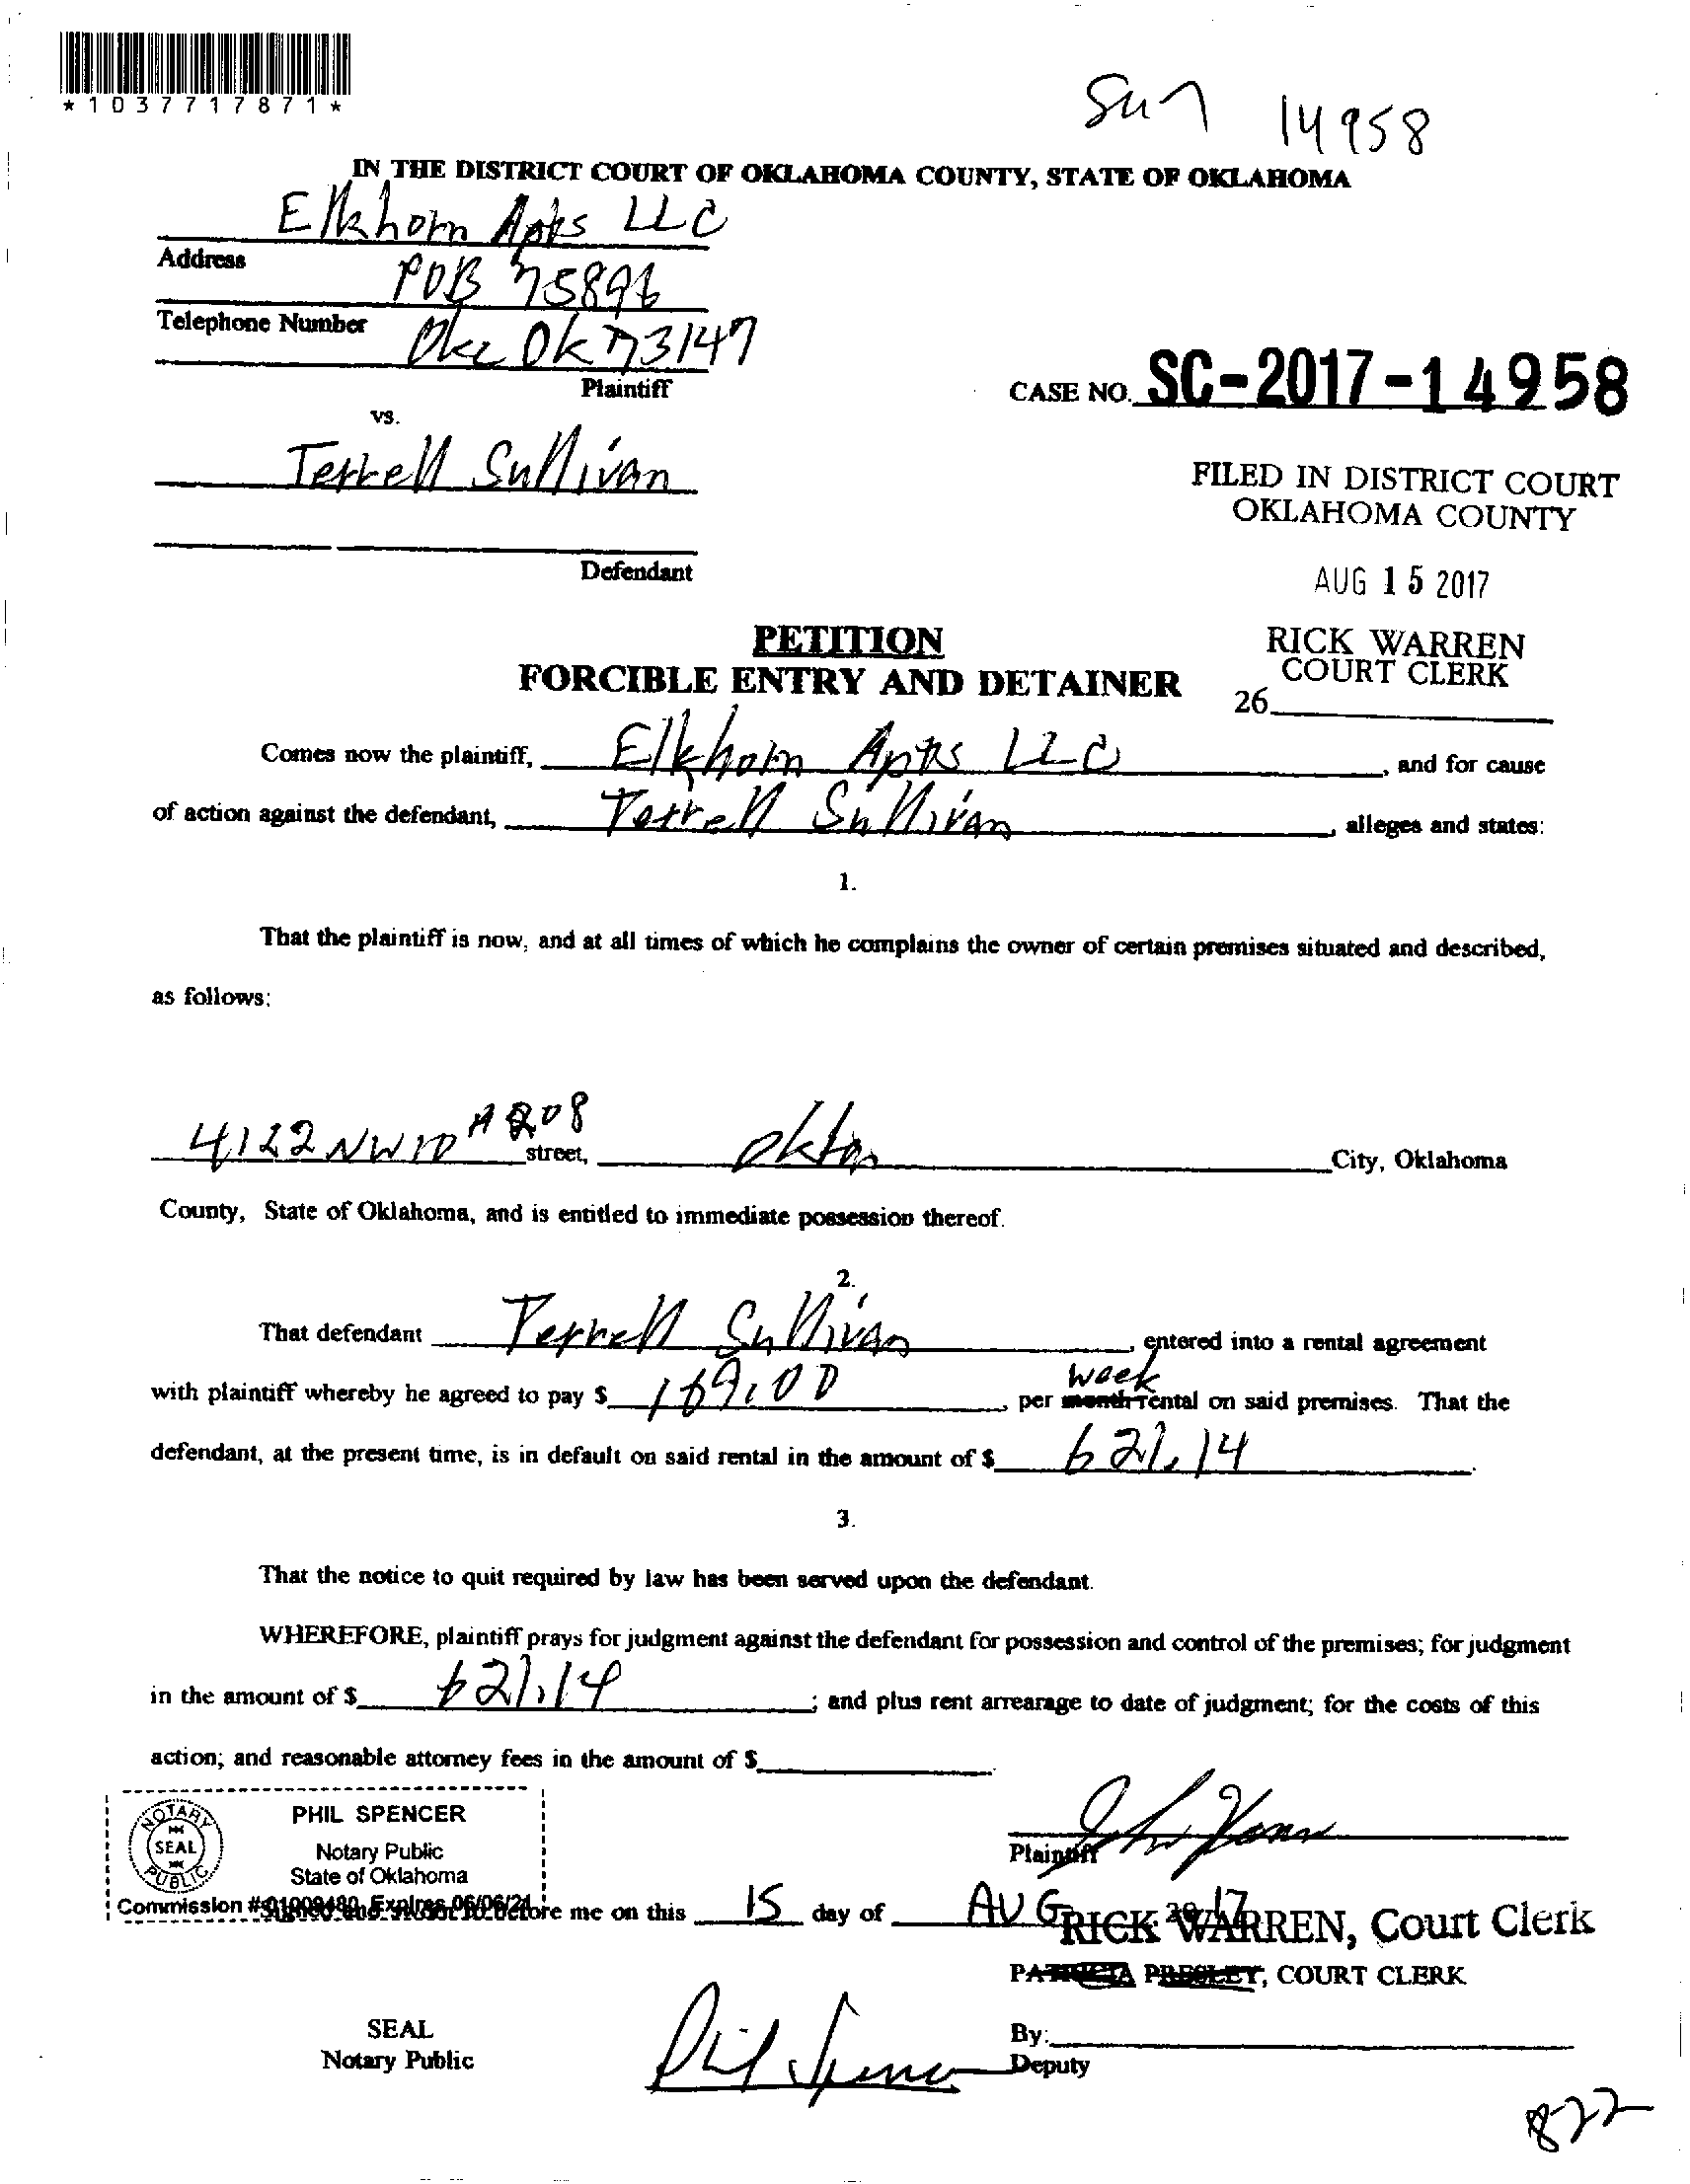 *1037717871*
Sun 14958
IN THE DISTRICT COURT OF OKLAHOMA COUNTY, STATE OF OKLAHOMA
Elkhorn Apts LLC
Address
POB 75896
Telephone Number
Okc Ok 73147
Plaintiff
CASE NO. SC-2017-14958
vs.
Terrell Sullivan
FILED IN DISTRICT COURT
OKLAHOMA COUNTY
Defendant
AUG 15 2017
PETITION
FORCIBLE ENTRY AND DETAINER
RICK WARREN
COURT CLERK
26
Comes now the plaintiff, Elkhorn Apts LLC, and for cause
of action against the defendant, Terrell Sullivan, alleges and states:
1.
That the plaintiff is now, and at all times of which he complains the owner of certain premises situated and described,
as follows:
4122 NW 10 A 208 street, City, Oklahoma
County, State of Oklahoma, and is entitled to immediate possession thereof.
2.
That defendant Terrell Sullivan, entered into a rental agreement
week
with plaintiff whereby he agreed to pay $ 169.00, per month rental on said premises. That the
defendant, at the present time, is in default on said rental in the amount of $ 621.14.
3.
That the notice to quit required by law has been served upon the defendant.
WHEREFORE, plaintiff prays for judgment against the defendant for possession and control of the premises; for judgment
in the amount of $ 621.14; and plus rent arrearage to date of judgment; for the costs of this
action; and reasonable attorney fees in the amount of $
NOTARY PUBLIC SEAL
PHIL SPENCER
Notary Public
State of Oklahoma
Commission #01009480 Expires 06/06/21
Plaintiff
before me on this 15 day of AUG 2017
RICK WARREN, Court Clerk
PATRICIA PRESLEY, COURT CLERK
SEAL
Notary Public
Phil Spencer
By:
Deputy
822